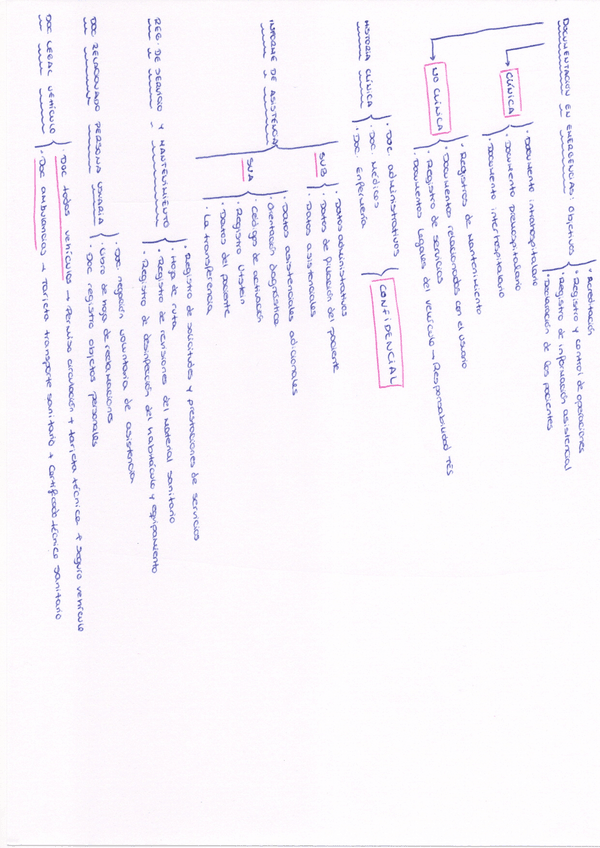 DOCUMENTACIÓN EN EMERGENCIAS: Objetivos
· Acreditación
· Registro y control de operaciones
· Registro de información asistencial
· Declaración de los pacientes
CLÍNICA
· Documento intrahospitalario
· Documento prehospitalario
· Documento interhospitalario
NO CLÍNICA
· Registros de mantenimiento
· Documentos relacionados con el usuario
· Registro de servicios
· Documentos legales del vehículo → Responsabilidad TES
HISTORIA CLÍNICA
· Doc. administrativos
· Doc. médicos
· Doc. enfermería
CONFIDENCIAL
INFORME DE ASISTENCIA
SVB
· Datos administrativos
· Datos de filiación del paciente
· Datos asistenciales
SVA
· Datos asistenciales adicionales
· Orientación diagnóstica
· Código de activación
· Registro Utstein
· Datos del paciente
· La transferencia
REG. DE SERVICIO Y MANTENIMIENTO
· Registro de solicitudes y prestaciones de servicios
· Hoja de ruta
· Registro de revisiones del material sanitario
· Registro de desinfección del habitáculo y equipamiento
DOC RELACIONADO PERSONA USUARIA
· Doc. negación voluntaria de asistencia
· Libro de hoja de reclamaciones
· Doc registro objetos personales
DOC LEGAL VEHÍCULO
· Doc todos vehículos → Permiso circulación + tarjeta técnica + seguro vehículo
· Doc ambulancias → Tarjeta transporte sanitario + Certificado técnico sanitario